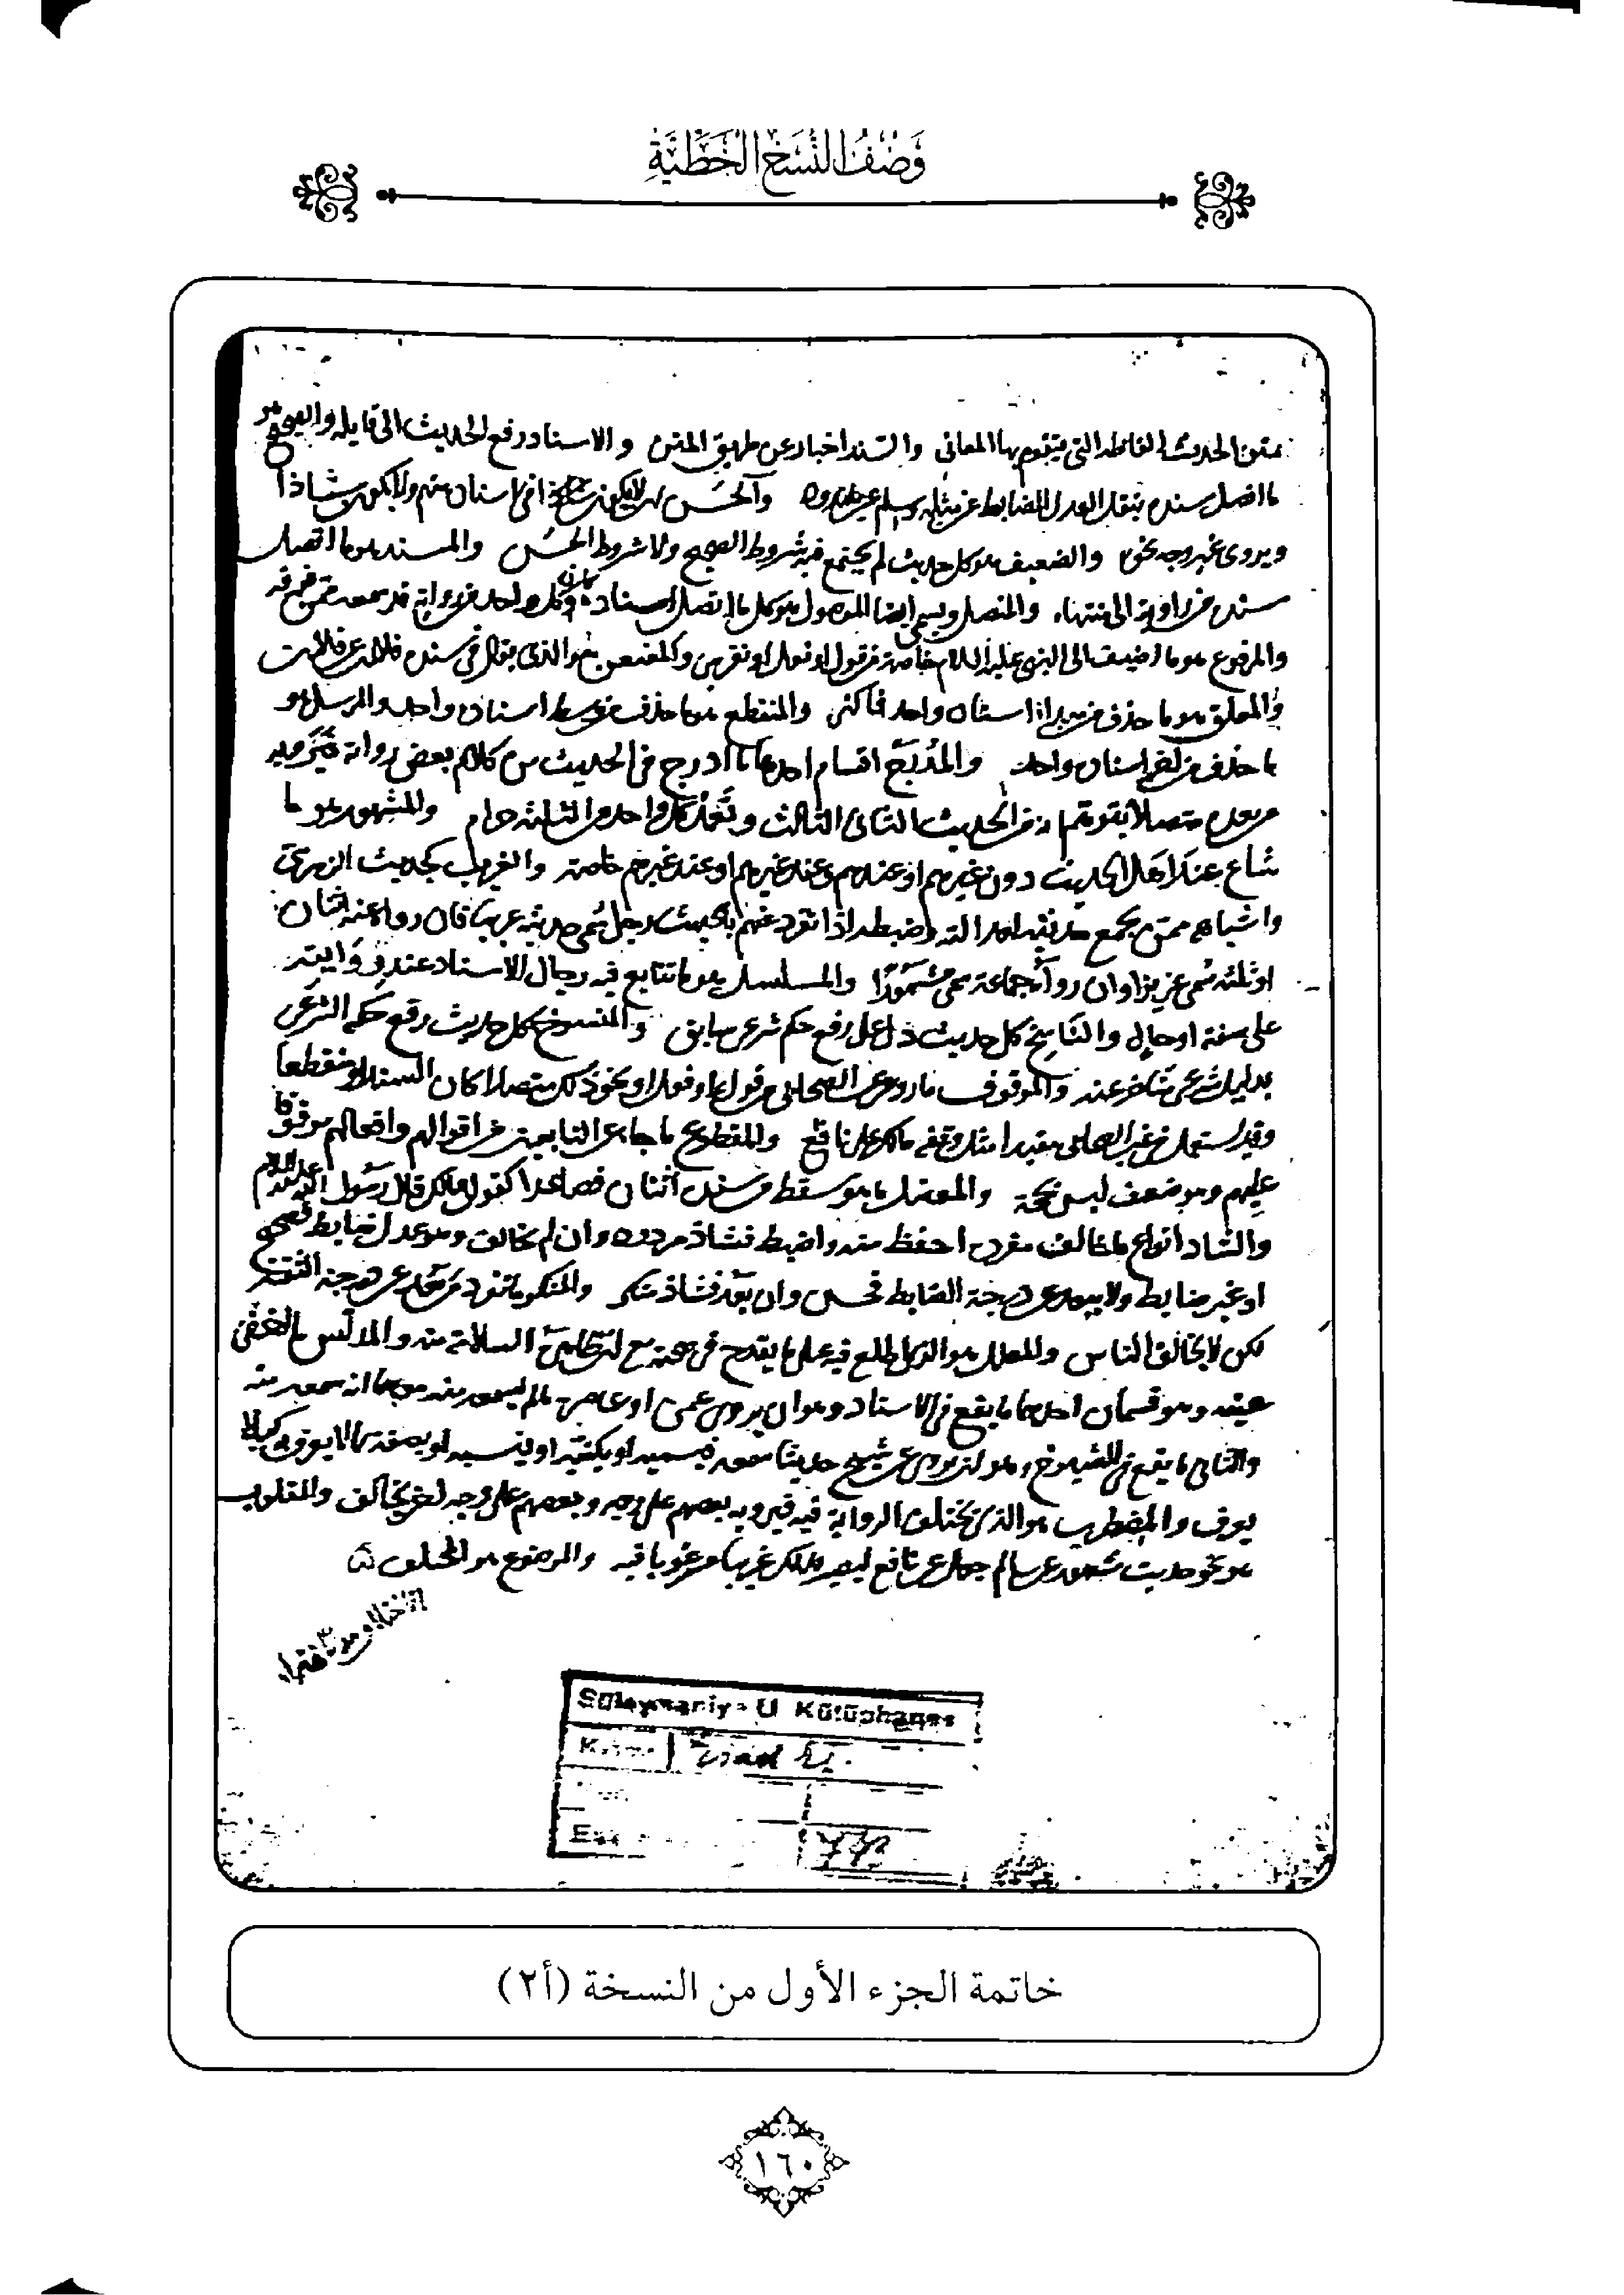 وصف النسخ الخطية
متن الحديث الفاظه التي يتقوم بها المعاني والسند اخبار عن طريق المتن والاسناد رفع الحديث الى قايله والصحيح هو
ما اتصل سنده بنقل العدل الضابط عن مثله وسلم عن والحسن لا يكون في اسناده متهم ولا يكون شاذا
ويروى غير وجه نحوه والضعيف هو كل حديث لم يجتمع فيه شروط الصحيح ولا شروط الحسن والمسند هو ما اتصل
سنده من راويه الى منتهاه والمتصل ويسمى ايضا الموصول هو كل ما اتصل اسناده وكان كل واحد من رواته قد سمعه ممن فوقه
والمرفوع هو ما اضيف الى النبي عليه السلام خاصة من قول او فعل او تقرير والمعنعن هو الذي يقال في سنده فلان عن فلان
والمعلق هو ما حذف من مبدا اسناده واحد فاكثر والمنقطع هو ما حذف من وسط اسناده واحد والمرسل هو
ما حذف من اخر اسناده واحد والمدرج اقسام احدها ما ادرج في الحديث من كلام بعض رواته
متصلا من الحديث الثاني الثالث وتعمد كل واحد من الثلثة حرام والمشهور هو ما
شاع عند اهل الحديث دون غيرهم او عندهم وعند غيرهم او عند غيرهم خاصة والغريب كحديث الزهري
واشباهه ممن يجمع حديثه لعدالته وضبطه اذا تفرد عنهم بالحديث رجل سمي حديثه غريبا فان رواه عنه اثنان
او ثلثة سمي عزيزا وان رواه جماعة سمي مشهورا والمسلسل هو ما تتابع فيه رجال الاسناد عند روايته
على صفة او حال والناسخ كل حديث دل على رفع حكم شرعي سابق والمنسوخ كل حديث رفع حكمه الشرعي
بدليل شرعي متاخر عنه والموقوف ما روي عن الصحابي من قول او فعل او نحو ذلك متصلا كان السند او منقطعا
وقد يستعمل في غير الصحابي مقيدا مثل وقفه مالك على نافع والمقطوع ما جاء عن التابعين من اقوالهم وافعالهم موقوفا
عليهم وهو ضعيف ليس بحجة والمعضل ما هو سقط من سنده اثنان فصاعدا كقول مالك قال رسول الله عليه السلام
والشاذ انواع ما خالف مفرده احفظ منه واضبط فشاذ مردود وان لم يخالف وهو عدل ضابط فصحيح
او غير ضابط ولا يبعد عن درجة الضابط فحسن وان بعد فشاذ منكر والمنكر ما تفرد من بعد عن درجة الثقة
لكن لا يخالف الناس والمعلل هو الذي اطلع فيه على ما يقدح في صحته مع ان ظاهره السلامة منه والمدلس ما اخفى
عيبه وهو قسمان احدها ما يقع في الاسناد وهو ان يروي عمن او عاصره ما لم يسمعه منه موهما انه سمعه منه
والثاني ما يقع في الشيوخ وهو ان يروي عن شيخ حديثا سمعه فيسميه او يكنيه او ينسبه او يصفه بما لا يعرف به كيلا
يعرف والمضطرب هو الذي يختلف الرواية فيه فيرويه بعضهم على وجه وبعضهم على وجه اخر يخالف والمقلوب
هو نحو حديث مشهور عن سالم جعل عن نافع ليصير بذلك غريبا مرغوبا فيه والموضوع هو المختلق
Süleymaniye U Kütüphanesi
خاتمة الجزء الأول من النسخة (أ٢)
١٦٠